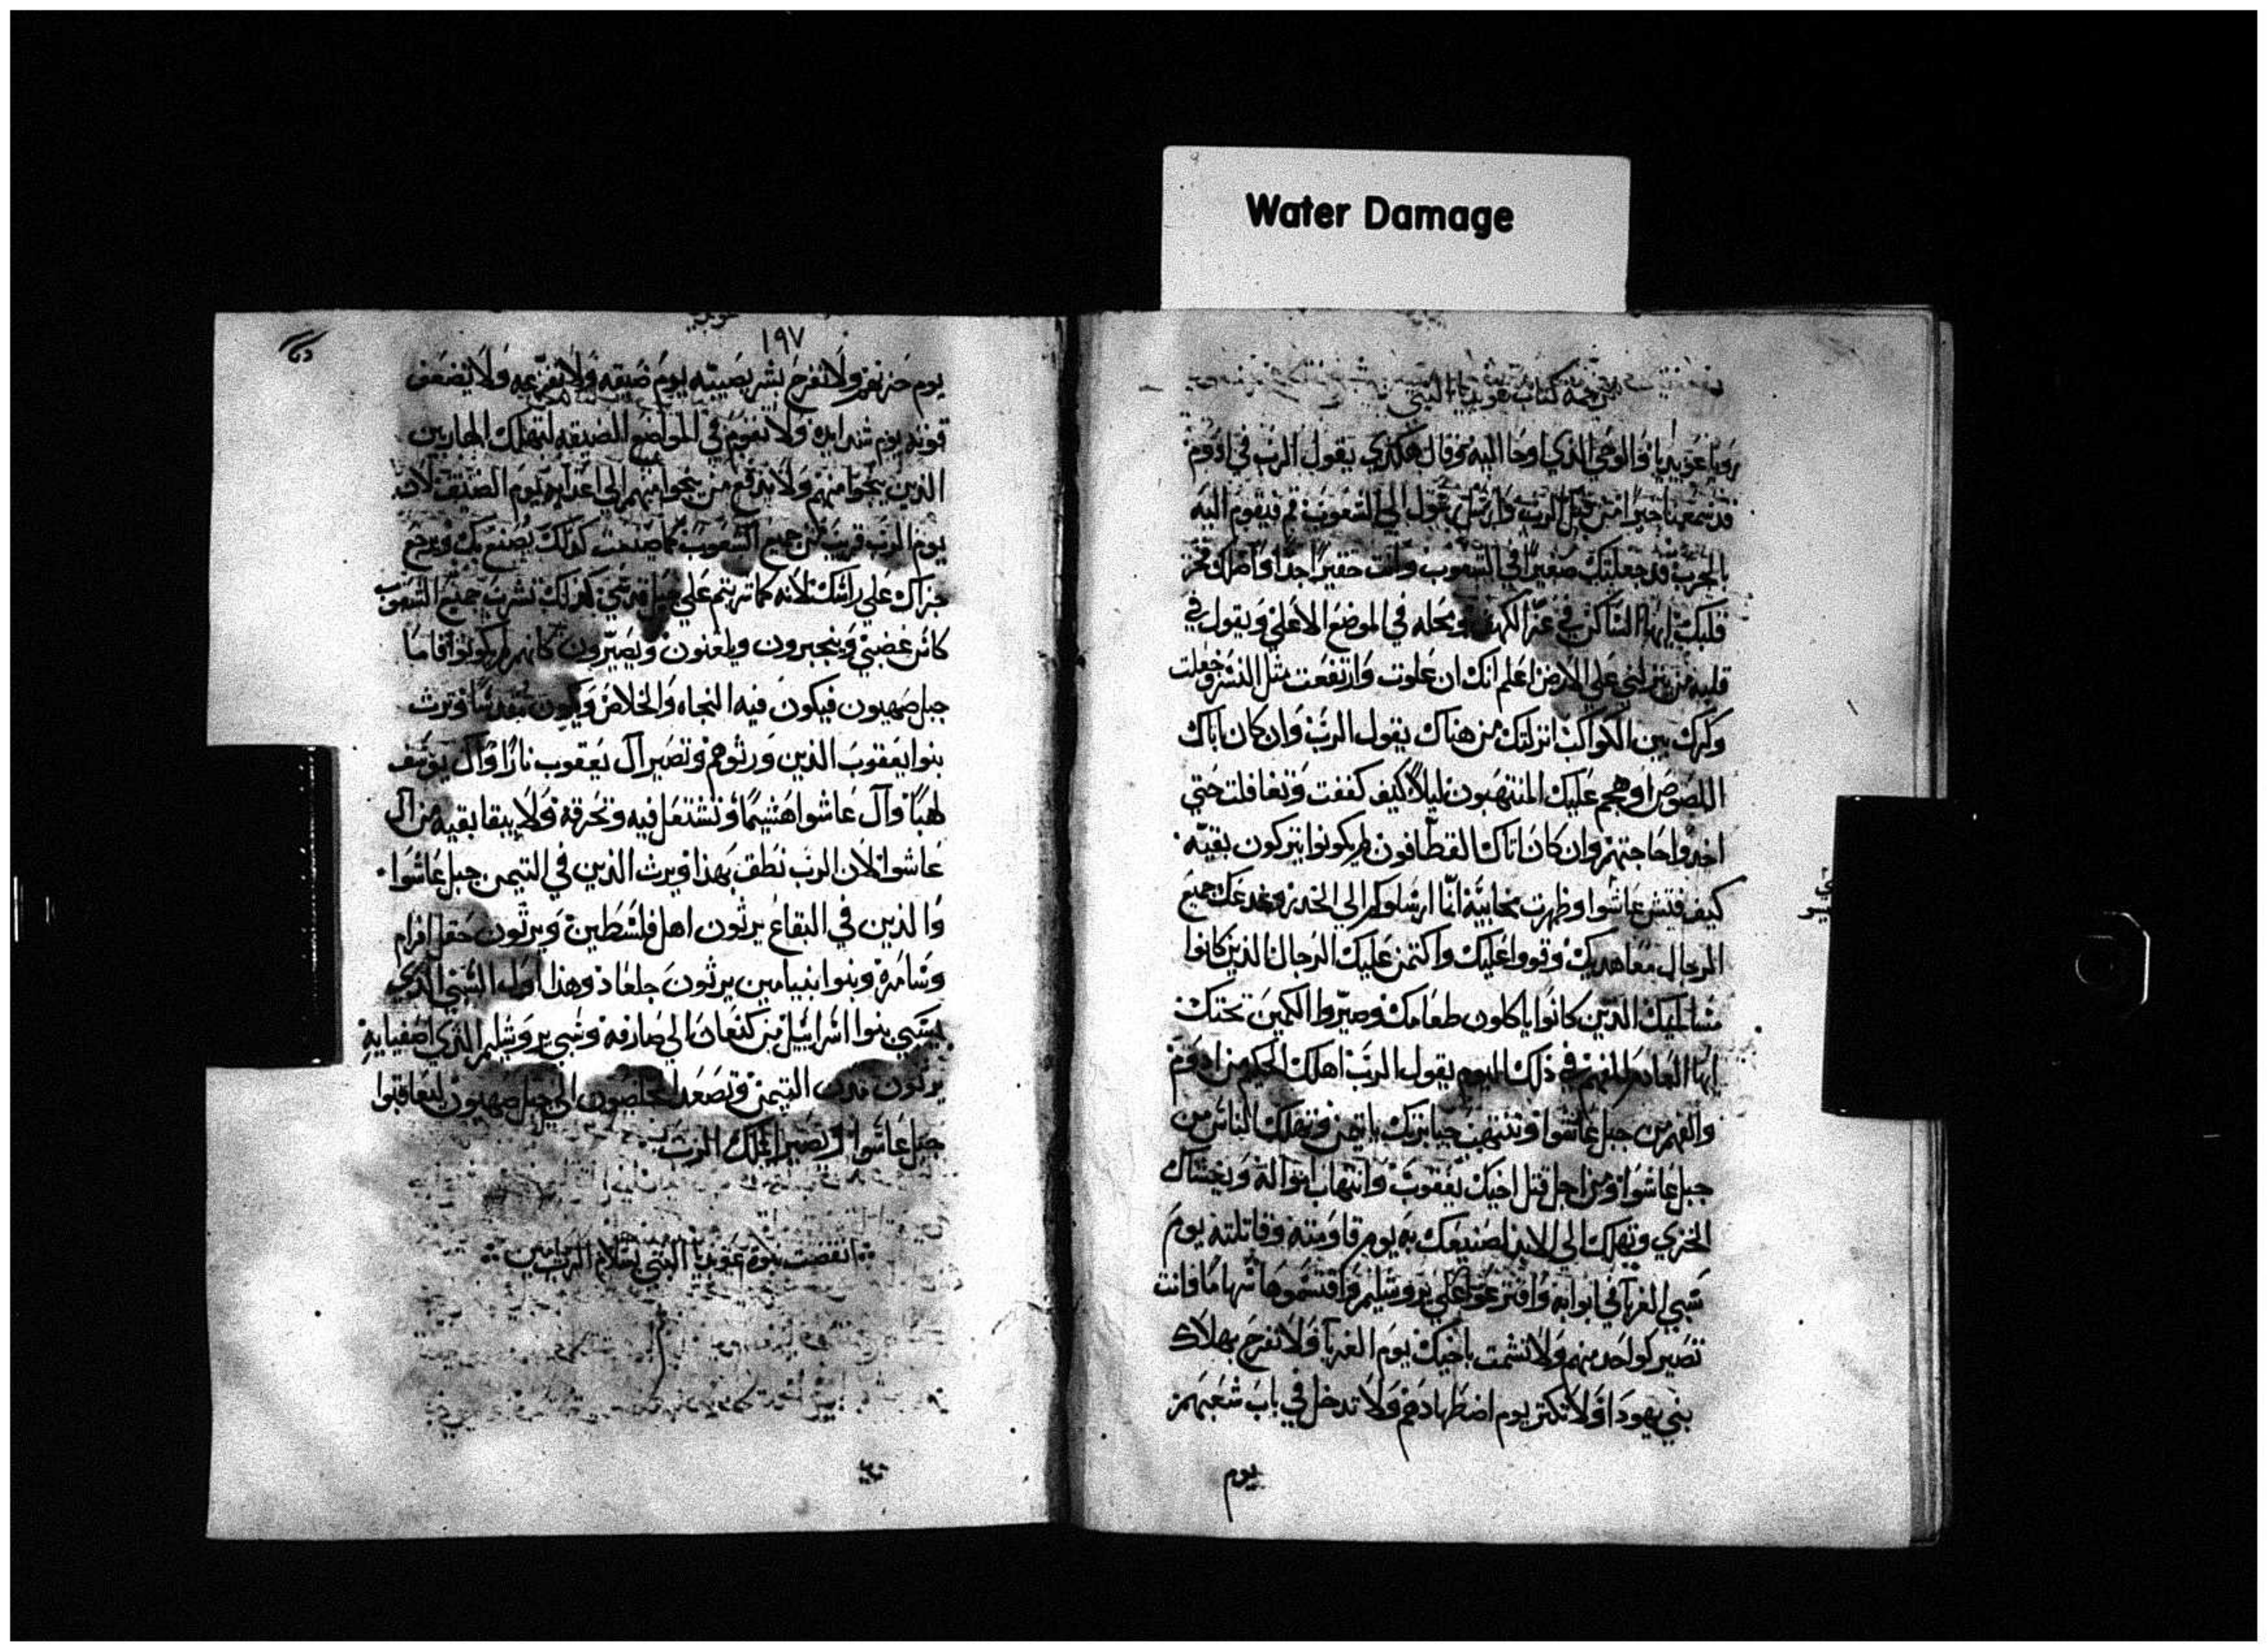 Water Damage
ترجمة كتاب عوبديا النبي
رويا عوبديا والوحي الذي اوحا اليه وقال هكذي يقول الرب في ادوم
قد سمعنا خبرا من قبل الرب وارسل يقول الي الشعوب قم فيقوم اليه
بالحرب قد جعلتك صغيرا في الشعوب وانت حقير اجدا
قلبك ايها الساكن في عز الكهف ومحله في الموضع الاعلي ويقول في
قلبه من ينزلني علي الارض اعلم انك ان علوت وارتفعت مثل النسر وجعلت
وكرك بين الكواكب انزلتك من هناك يقول الرب وان كان اتاك
اللصوص او هجم عليك المنتهبون ليلا كيف كففت وتغافلت حتي
اخدوا حاجتهم وان كان اتاك القطافون لم يكونوا يتركون بقيه
كيف فتش عاشوا وظهرت مخابيه انا ارسلوكم الي الحد وخدعك جميع
الرجال معاهديك وقووا عليك واكتمن عليك الرجال الذين كانوا
مسالميك الذين كانوا ياكلون طعامك وصيروا الكمين تحتك
ايها العادم الفهم في ذلك اليوم يقول الرب اهلك الحكيم من ادوم
والفهم من جبل عاشوا وتنتهب جبابرتك يا تيمن وتهلك الناس من
جبل عاشوا ومن اجل قتل اخيك يعقوب وانتهاب امواله ويغشاك
الخزي وتهلك الي الابد لصنيعك به يوم قاومته وقاتلته يوم
سبي الغربا في ابوابه واقترعوا علي يروشليم واقتسموها سهاما فانت
تصير كواحد منهم ولا تشمت باخيك يوم الغربا ولا تفرح بهلاك
بني يهودا ولا تكثر يوم اضطهادهم ولا تدخل في باب شعبهم
يوم
١٩٧
يوم حزنهم ولا تفرح بشر بصيبه يوم ضيقه ولا تفزعه ولا تضعف
قوته يوم شدايده ولا تقوم في المواضع الضيقه لتهلك الهاربين
الذين ينجوا منهم ولا تدفع من ينجوا منهم الي اعدايه يوم الضيق لان
يوم الرب قريب من جميع الشعوب كما صنعت كذلك يصنع بك ويرجع
جزاك علي راسك لانه كما شربتم علي جبل قدسي كذلك تشرب جميع الشعوب
كاس غضبي ويتجبرون ويلعنون ويصيرون كانهم لم يكونوا فاما
جبل صهيون فيكون فيه النجاه والخلاص ويكون مقدسا وترث
بنوا يعقوب الذين ورثوهم وتصير آل يعقوب نارا وآل يوسف
لهبا وآل عاشوا هشيما وتشتعل فيه وتحرقه ولا يبقا بقيه من آل
عاشوا لان الرب نطق بهذا ويرث الذين في التيمن جبل عاشوا
والذين في البقاع يرثون اهل فلسطين ويرثون حقل افرام
وسامرة وبنوا بنيامين يرثون جلعاد وهذا اول السبي الذي
يسبي بنوا اسراييل من كنعان الي صارفه وسبي يروشليم الذي
يرثون مدن التيمن وتصعد المخلصون الي جبل صهيون ليعاقبوا
جبل عاشوا ويصير الملك للرب
انقضت نبوة عوبديا النبي بسلام الرب امين